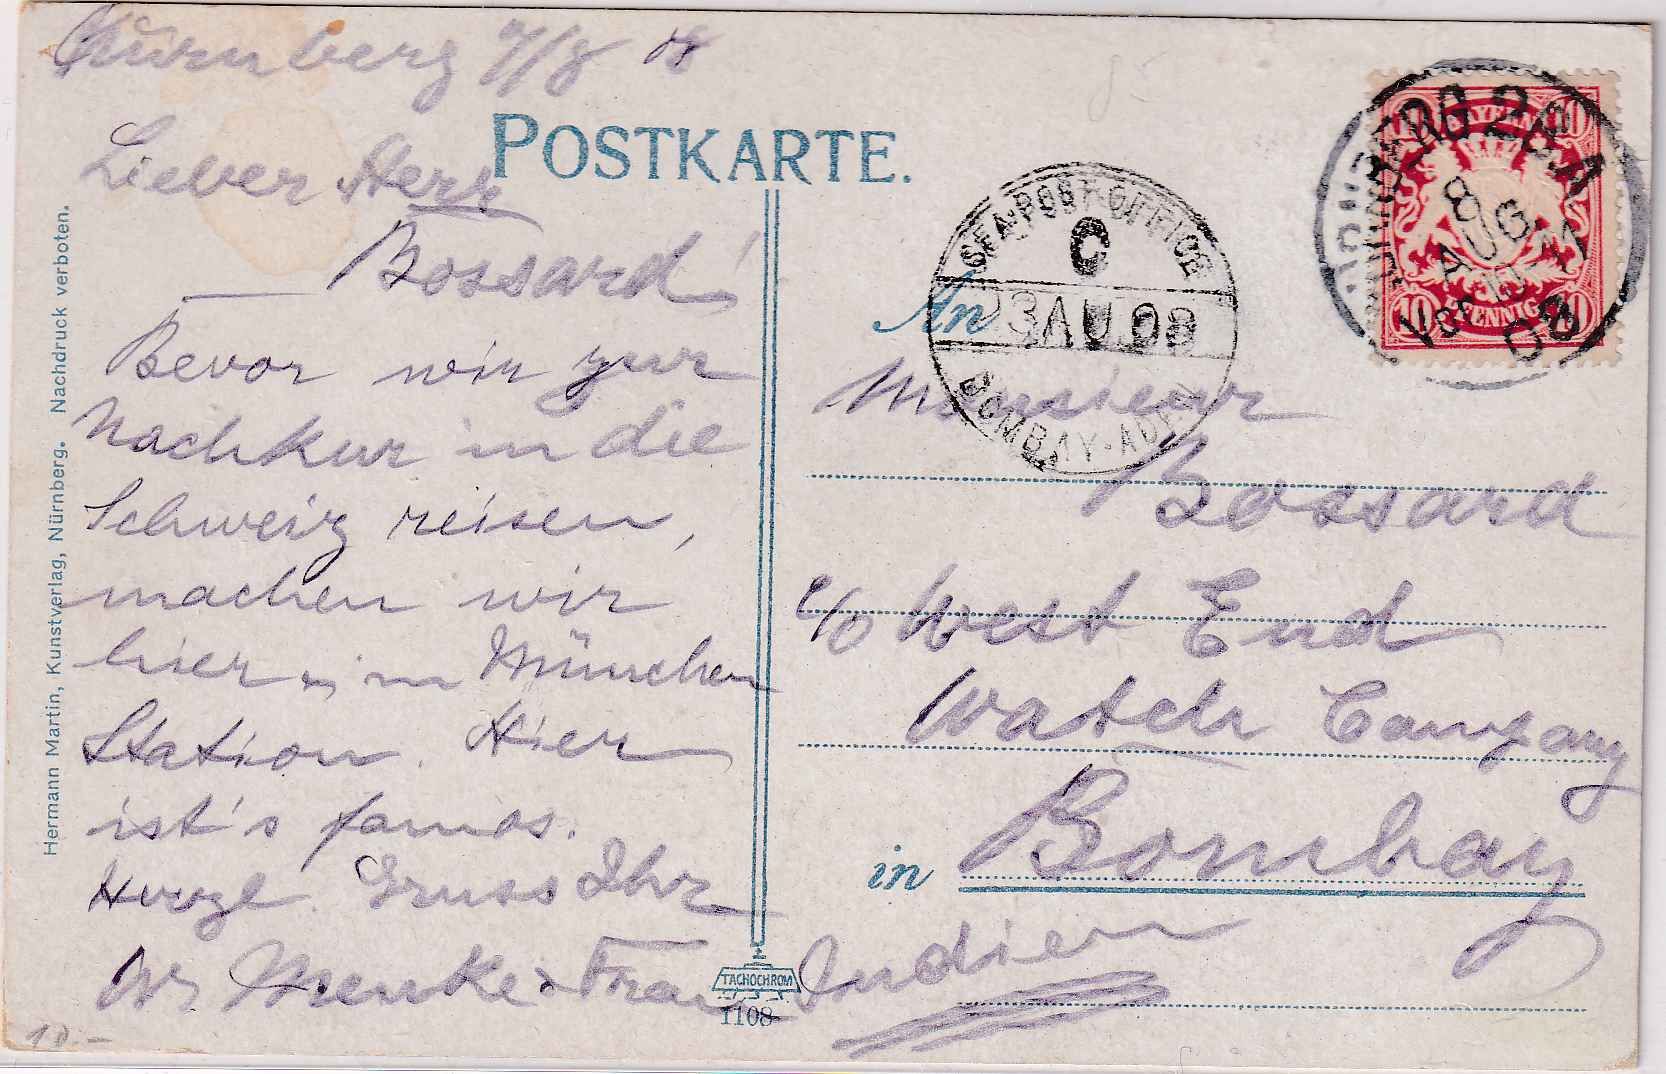 Nürnberg 7/8 08
POSTKARTE.
Lieber Herr
Bossard!
Bevor wir zur
Nachkur in die
Schweiz reisen,
machen wir
hier u. in München
Station. Hier
ist's famos.
Herzl. Gruss Ihr
Menke & Frau
Hermann Martin, Kunstverlag, Nürnberg. Nachdruck verboten.
TACHOCHROM
1108
10.-
SEA-POST-OFFICE
C
23 AU 08
BOMBAY-ADEN
NÜRNBERG 2 B.A.
8
AUG
10-11
08
BAYERN
10
10
10
PFENNIG
An
Monsieur
Bossard
c/o West End
Watch Company
in Bombay
Indien